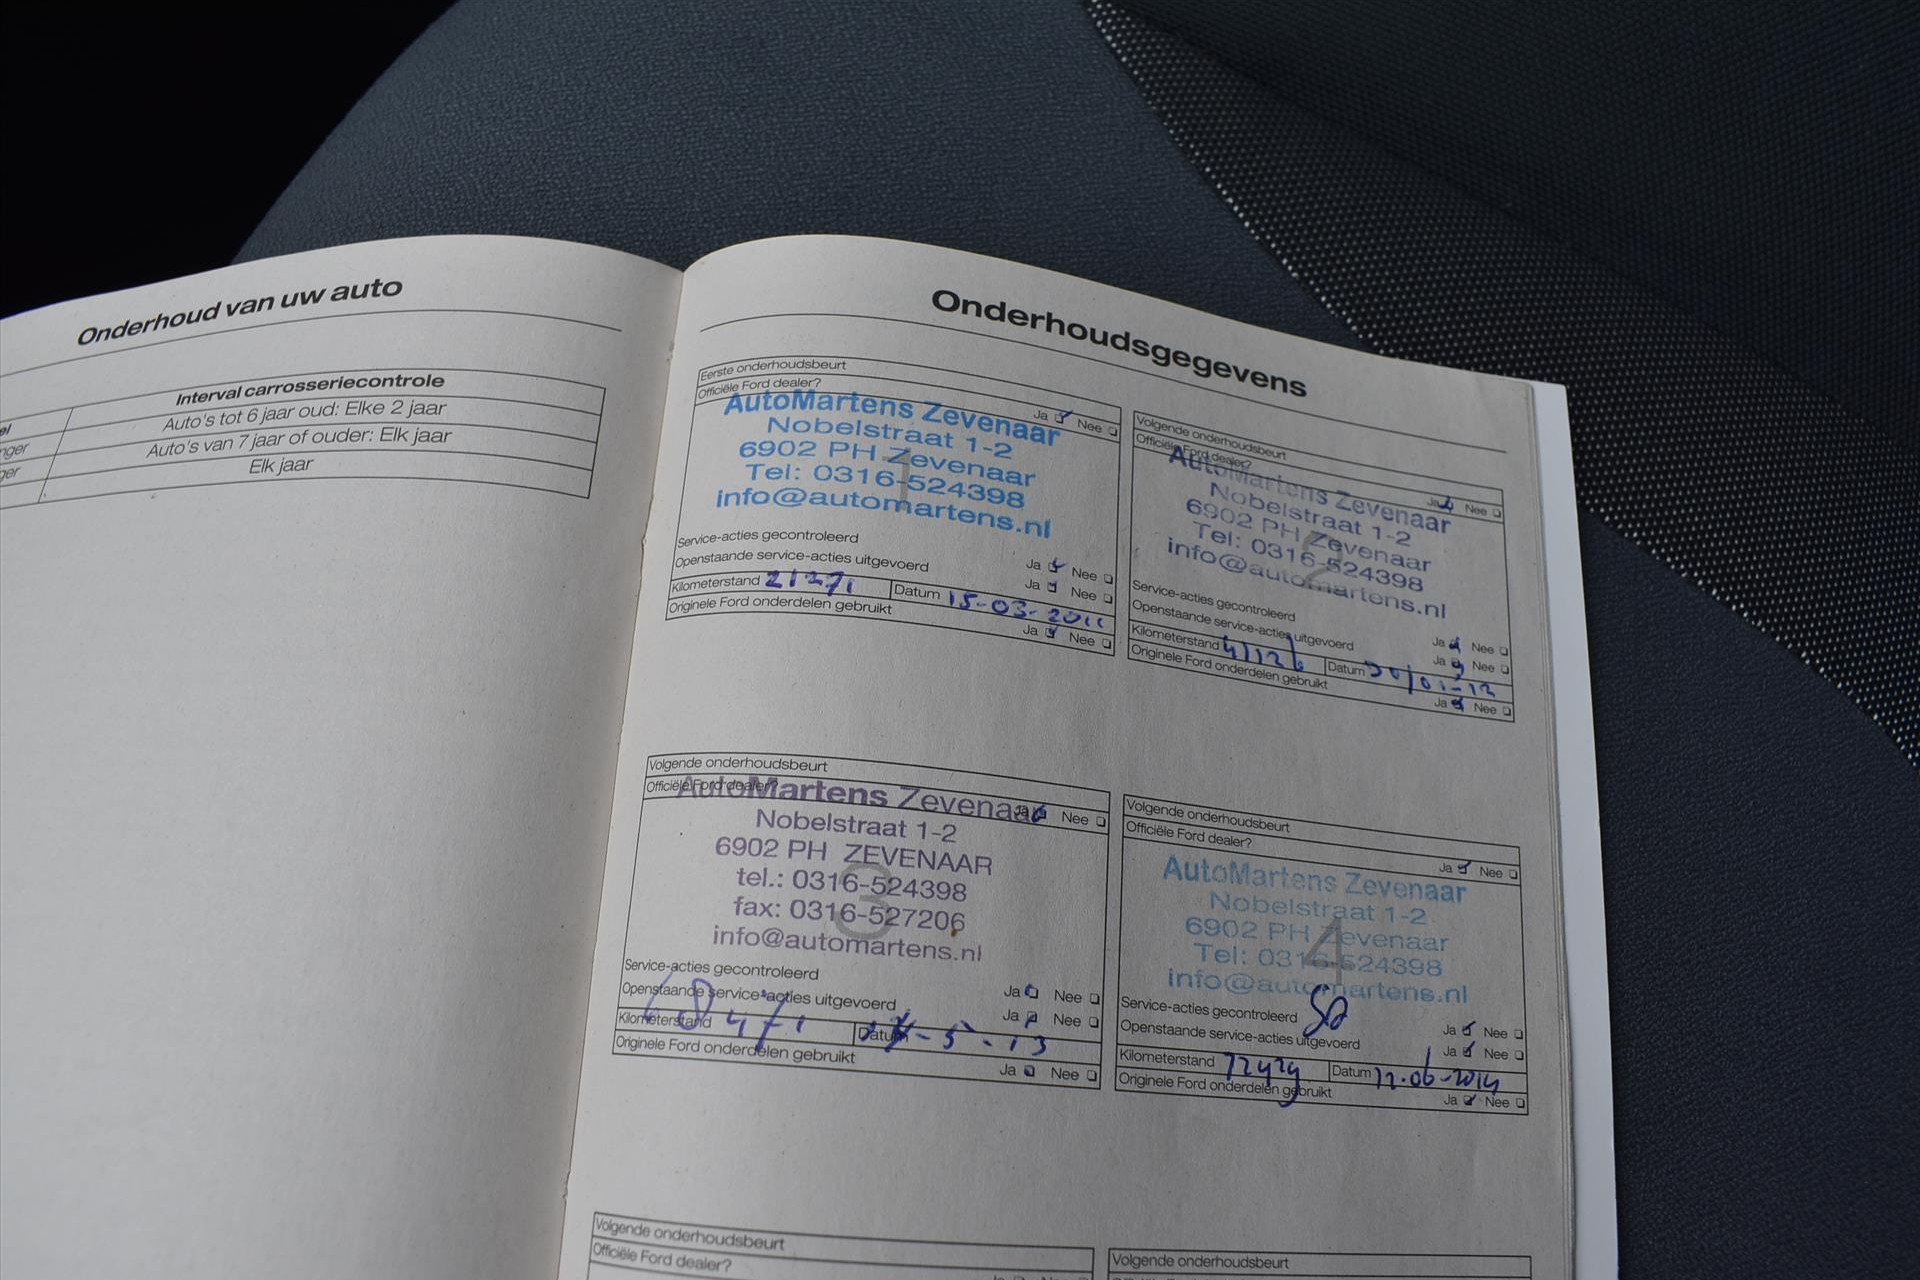 Onderhoud van uw auto
Interval carrosseriecontrole
Auto's tot 6 jaar oud: Elke 2 jaar
Auto's van 7 jaar of ouder: Elk jaar
Elk jaar
Onderhoudsgegevens
Eerste onderhoudsbeurt
Officiële Ford dealer?
Ja Nee
AutoMartens Zevenaar
Nobelstraat 1-2
6902 PH Zevenaar
Tel: 0316-524398
info@automartens.nl
1
Service-acties gecontroleerd
Ja Nee
Openstaande service-acties uitgevoerd
Ja Nee
Kilometerstand 21371 Datum 15-03-2011
Originele Ford onderdelen gebruikt
Ja Nee
Volgende onderhoudsbeurt
Officiële Ford dealer?
Ja Nee
AutoMartens Zevenaar
Nobelstraat 1-2
6902 PH Zevenaar
Tel: 0316-524398
info@automartens.nl
2
Service-acties gecontroleerd
Ja Nee
Openstaande service-acties uitgevoerd
Ja Nee
Kilometerstand 41126 Datum 30/01-12
Originele Ford onderdelen gebruikt
Ja Nee
Volgende onderhoudsbeurt
Officiële Ford dealer?
Ja Nee
AutoMartens Zevenaar
Nobelstraat 1-2
6902 PH ZEVENAAR
tel.: 0316-524398
fax: 0316-527206
info@automartens.nl
3
Service-acties gecontroleerd
Ja Nee
Openstaande service-acties uitgevoerd
Ja Nee
Kilometerstand Datum
Originele Ford onderdelen gebruikt
Ja Nee
Volgende onderhoudsbeurt
Officiële Ford dealer?
Ja Nee
AutoMartens Zevenaar
Nobelstraat 1-2
6902 PH Zevenaar
Tel: 0316-524398
info@automartens.nl
4
Service-acties gecontroleerd
Ja Nee
Openstaande service-acties uitgevoerd
Ja Nee
Kilometerstand 72429 Datum 12-06-2014
Originele Ford onderdelen gebruikt
Ja Nee
Volgende onderhoudsbeurt
Officiële Ford dealer?
Volgende onderhoudsbeurt